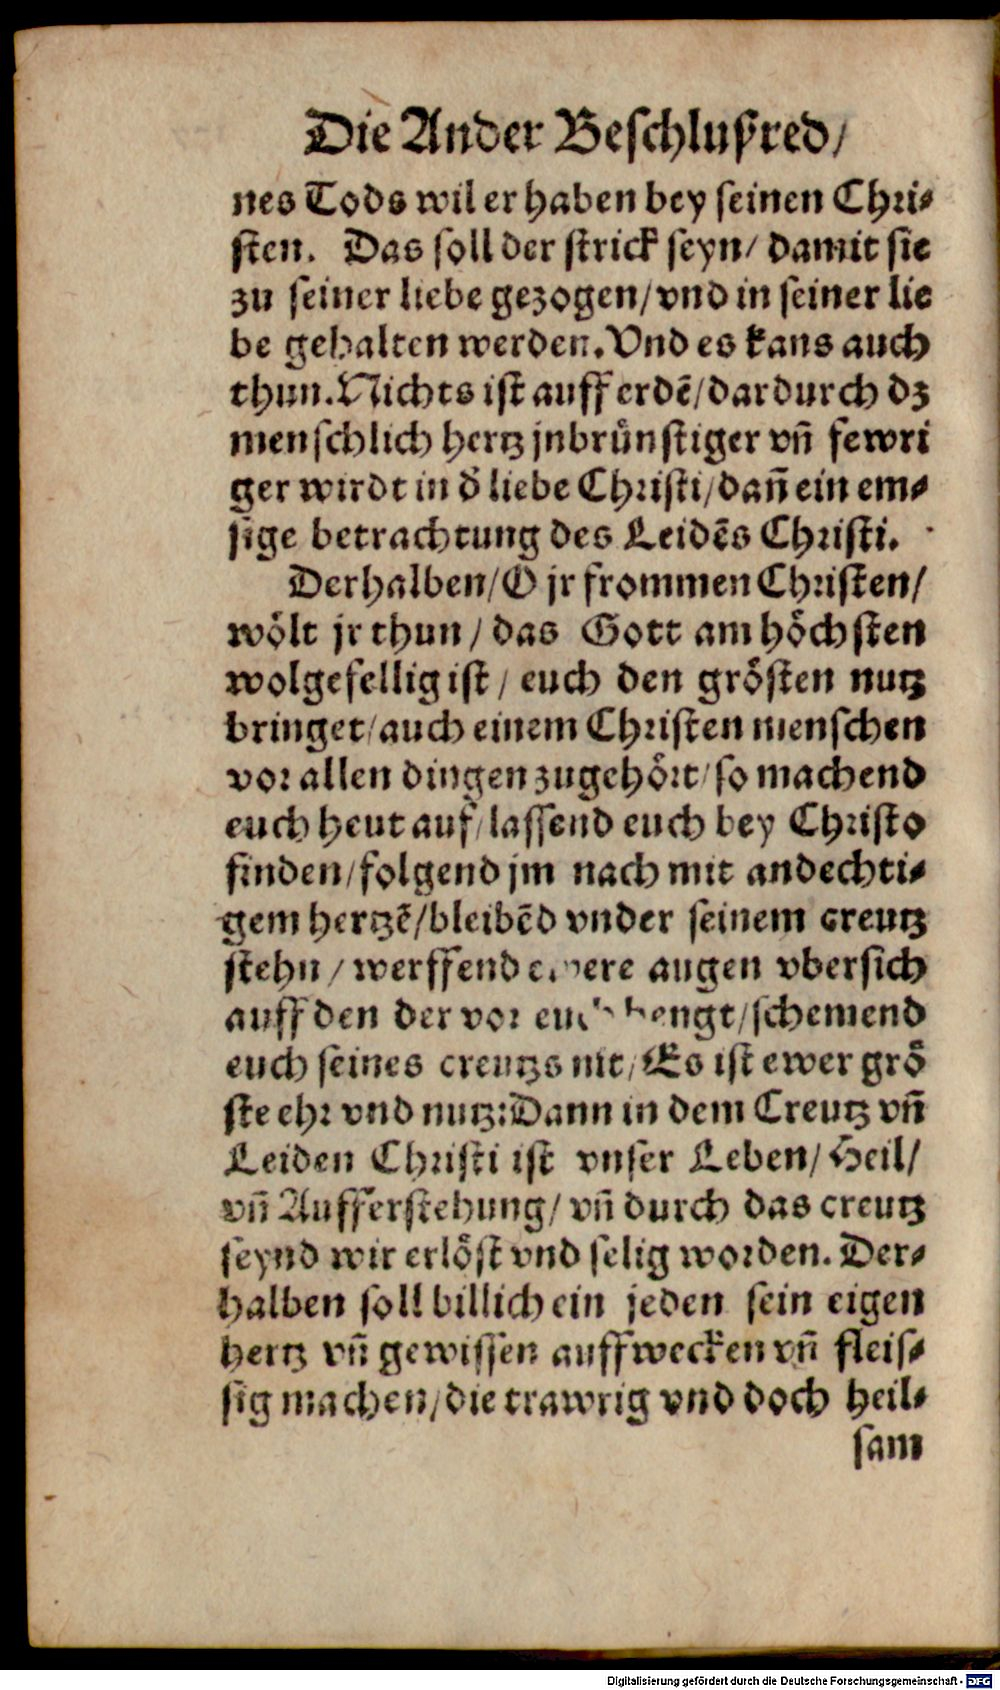 Die Ander Beschlußred/
nes Tods wil er haben bey seinen Chri⸗
sten. Das soll der strick seyn/ damit sie
zu seiner liebe gezogen/ vnd in seiner lie
be gehalten werden. Vnd es kans auch
thun. Nichts ist auff erdẽ/ dardurch dz
menschlich hertz jnbrünstiger vñ fewri
ger wirdt in d̕ liebe Christi/ dañ ein em⸗
sige betrachtung des Leidẽs Christi.
Derhalben/ O jr frommen Christen/
wölt jr thun/ das Gott am höchsten
wolgefellig ist/ euch den grösten nutz
bringet/ auch einem Christen menschen
vor allen dingen zugehört/ so machend
euch heut auf/ lassend euch bey Christo
finden/ folgend jm nach mit andechti⸗
gem hertzẽ/ bleibẽd vnder seinem creutz
stehn/ werffend ewere augen vbersich
auff den der vor euch hengt/ schemend
euch seines creutzs nit/ Es ist ewer grö
ste ehr vnd nutz: Dann in dem Creutz vñ
Leiden Christi ist vnser Leben/ Heil/
vñ Aufferstehung/ vñ durch das creutz
seynd wir erlöst vnd selig worden. Der⸗
halben soll billich ein jeden sein eigen
hertz vñ gewissen auffwecken vñ fleis⸗
sig machen/ die trawrig vnd doch heil⸗
sam
Digitalisierung gefördert durch die Deutsche Forschungsgemeinschaft - DFG